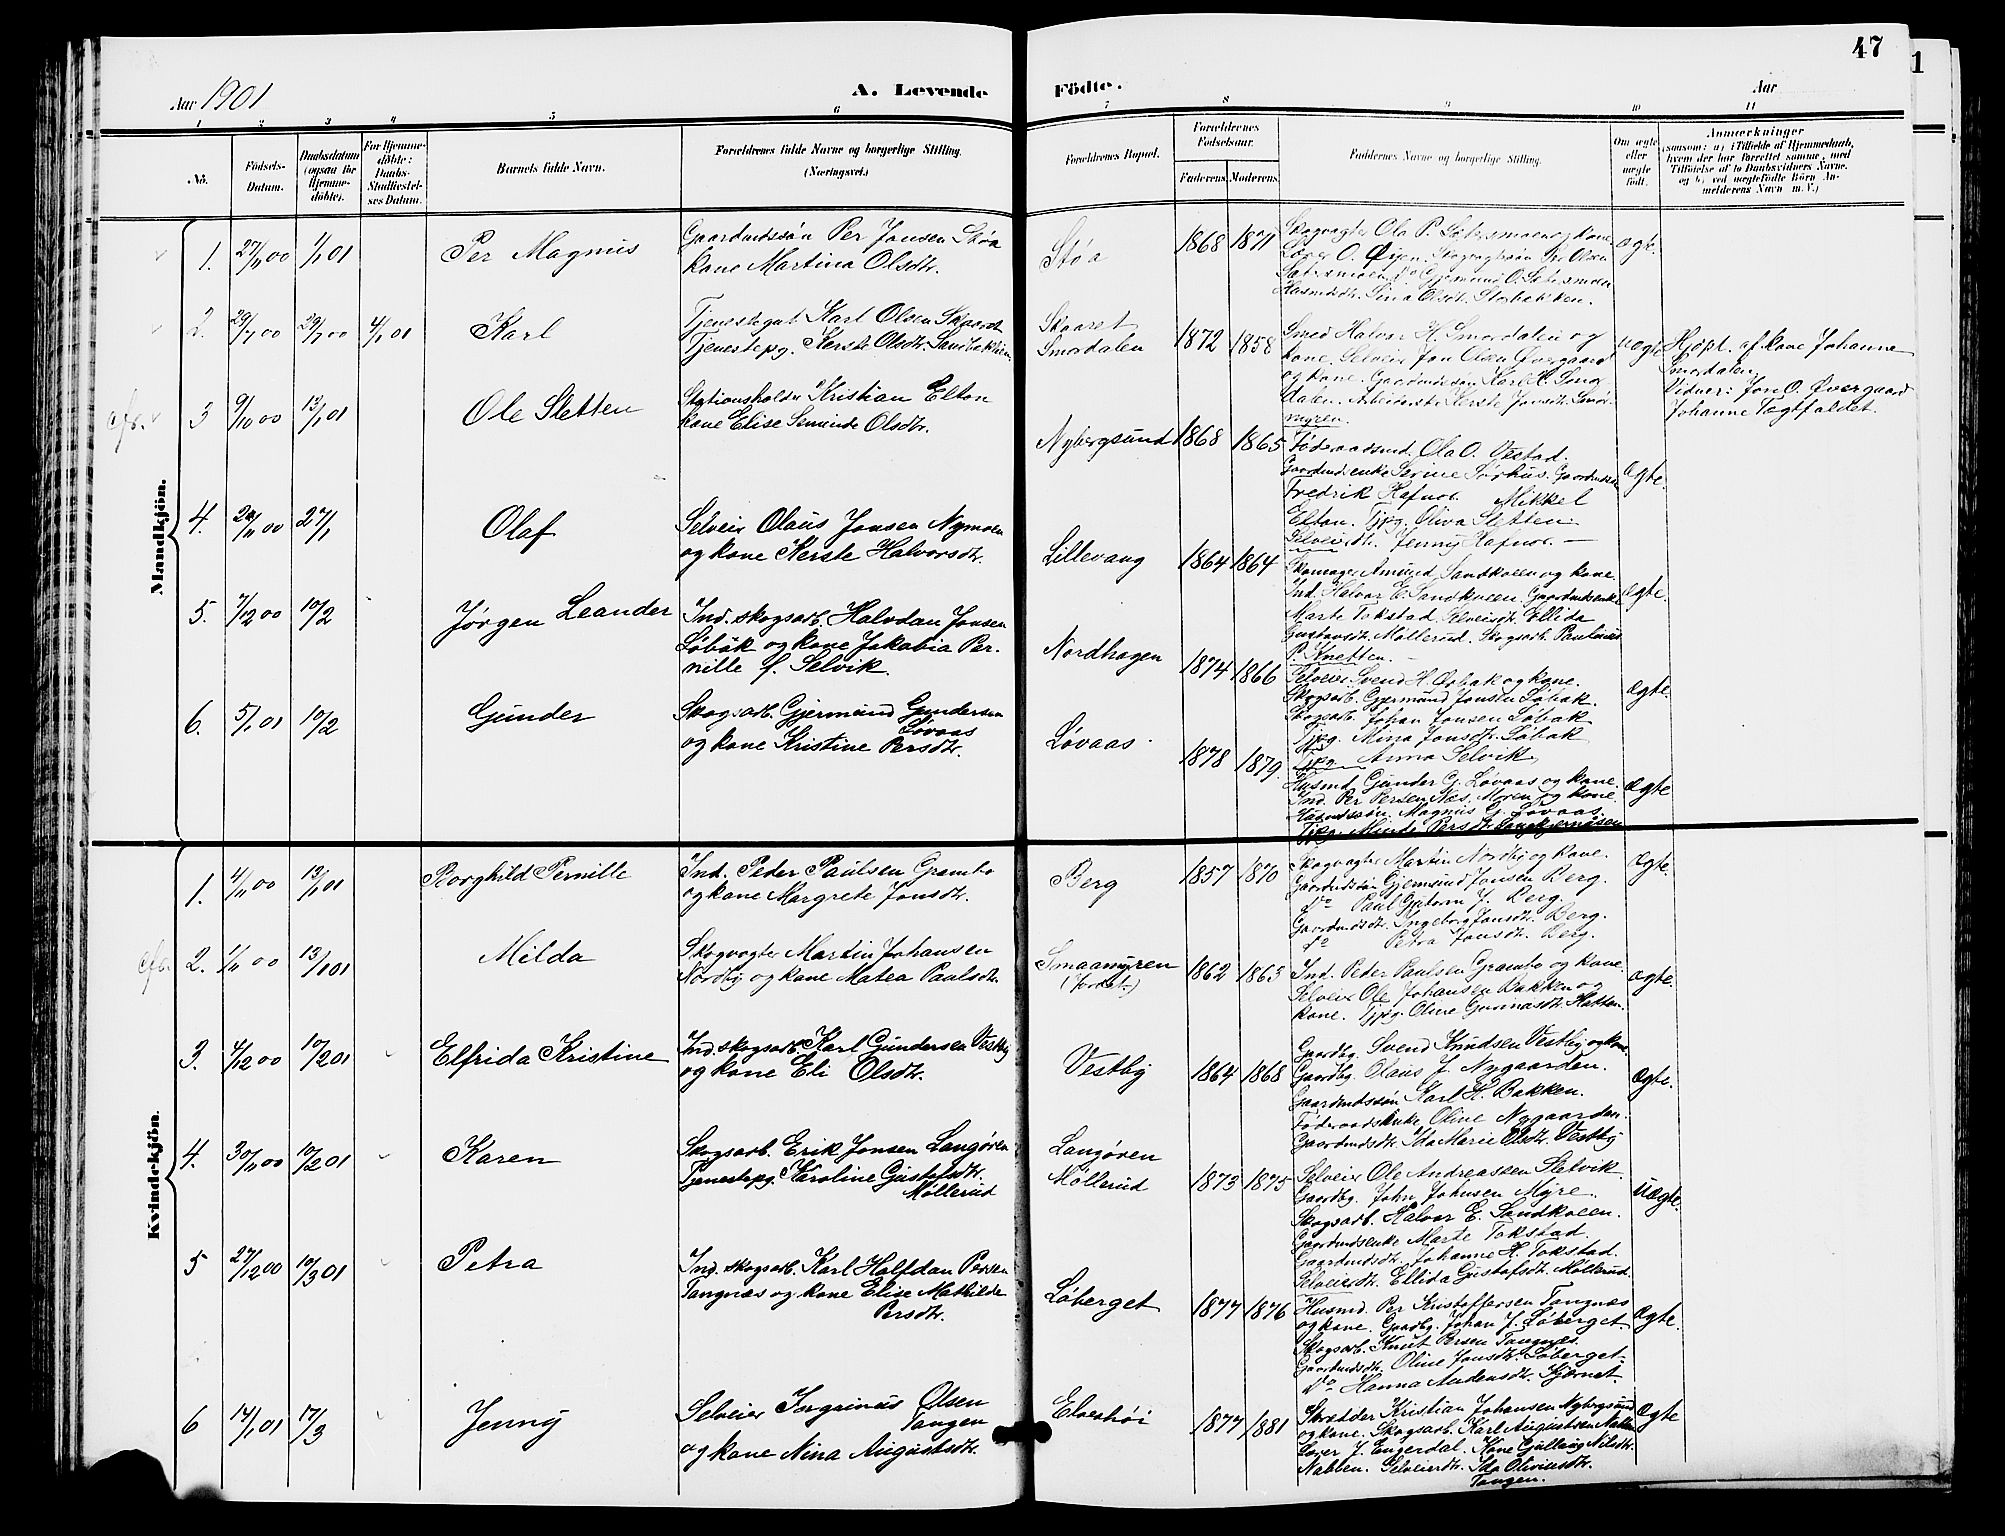 47
Aar 1901
A. Levende Födte.
Aar
1 2 3 4 5 6 7 8 9 10 11
No.
Födsels-
Datum.
Daabsdatum
(ogsaa for
Hjemme-
döbte).
For Hjemme-
döbte:
Daabs-
Stadfæstel-
ses Datum.
Barnets fulde Navn.
Forældrenes fulde Navne og borgerlige Stilling.
(Næringsvei.)
Forældrenes Bopæl.
Forældrenes
Fødselsaar.
Faderens. Moderens.
Faddernes Navne og borgerlige Stilling.
Om ægte
eller
uægte
født.
Anmærkninger
(saasom: a) i Tilfælde af Hjemmedaab,
hvem der har forrettet samme, med
Tilföielse af to Daabsvidners Navne.
og b) ved uægtefödte Börn An-
melderens Navn m. V.)
Mandkjön.
1. 27/11 00 1/1 01 Per Magnus
Gaardmdssøn Per Jonsen Støa
kone Martina Olsdtr.
Støa 1868 1871
Skogvagter Ola P. Sætersmoen og kone
Lover O. Øien. Skogvagtersøn Per Olsen
Sætersmoen. Do Gjermund O. Sætersmoen
Husmdsdtr. Sina Olsdt. Storbækken.
ægte.
2. 29/7 00 29/7 00 4/1 01 Karl
Tjenestegut Karl Olsen Skaaret
Tjenestepg. Kerste Olsdtr. Sandbækken
Skaaret
Smordalen
1872 1858
Smed Halvor H. Smordalen og
kone. Selveier Jon Olsen Øvergaard
og kone. Gaardmdssøn Karl H. Smor-
dalen. Arbeiderske Kerste Jonsdtr. Smør-
myren.
uægte
Hjdpt. af kone Johanne
Smordalen
Vidner: Jon O. Øvergaard
Johanne Tægtfaldet.
cfr. 3 9/10 00 13/1 01 Ole Sletten
Stationsholder Kristian Elton
kone Elise Semine Olsdtr.
Nybergsund 1868 1865
Føderaadsmd. Ola O. Vestad.
Gaardmd.enke Serine Sørhus. Gaardmdssøn
Fredrik Rafnos. Mikkel
Elton. Tjpg. Oliva Sletten.
Selveierdtr. Jenny Rafnos. —
ægte.
4. 28/11 00 27/1 Olaf
Selveier Olaus Jonsen Nymoen
og kone Kerste Halvorsdtr.
Lillevang 1864 1864
Skomager Amund Sandkveen og kone.
Ind. Halvor E. Sandkveen. Gaardmdsenke
Marte Tokstad. Selveierdtr. Ellida
Gustavsdtr. Møllerud. Skogsarb. Paulinus
P. Knetten. —
ægte.
5. 7/12 00 10/2 Jørgen Leander
Ind. skogsarb. Halvdan Jonsen
Løbäk og kone Jakobia Per-
nille f. Selvik.
Nordhagen 1874 1866
Selveier Svend H. Ørbak og kone.
Skogsarb. Gjermund Jonsen Løbak.
Skogsarb. Johan Jonsen Løbak
Tjpg. Mina Jonsdtr. Løbak
Tjpg. Anna Selvik
ægte.
6. 5/1 01 10/2 Gunder
Skogsarb. Gjermund Gundersen
Løvaas
og kone Kristine Persdtr.
Løvaas 1878 1879.
Husmd. Gunder G. Løvaas og kone.
Ind. Per Persen Næs. Moren og kone
Husmdssøn. Magnus G. Løvaas.
Tjpg. Minda Persdtr.
ægte
Kvindekjön.
1. 4/11 00 13/1 01 Borghild Pernille
Ind. Peder Paulsen Grambo
og kone Margrete Jonsdtr.
Berg 1857 1870
Skogvagter Martin Nordby og kone.
Gaardmdssøn Gjermund Jonsen Berg.
Do Paul Guttorm J. Berg.
Gaardmdsdtr. Ingeborg Jonsdtr. Berg.
Do Petra Jonsdtr. Berg.
Ægte.
cfr. 2. 1/11 00 13/1 01 Milda
Skogvagter Martin Johansen
Nordby og kone Matea Paulsdtr.
Smaamyren
(Jordet)
1862 1863
Ind. Peder Paulsen Grambo og kone.
Selveier Ole Johansen Bakken og
kone. Tjpg. Oline Gunnasdtr. Flatten.
ægte.
3. 4/12 00 10/2 01 Elfrida Kristine
Ind. skogsarb. Karl Gundersen Vestby
og kone Eli Olsdtr.
Vestby 1864 1868
Gaardbg. Svend Knudsen Vestby og kone.
Gaardbg. Olaus J. Nygaarden.
Gaardmdssøn Karl H. Bakken.
Føderaadsenke, Oline Nygaarden.
Gaardmdsdtr. Ida Marie Olsdtr. Vestby
Ægte.
4. 30/11 00 10/2 01 Karen
Skogsarb. Erik Jonsen Langøren
Tjenestepg. Karoline Gustafsdtr.
Møllerud
Langøren
Møllerud
1873 1875
Selveier Ole Andreassen Selvik.
Gaardbg. John Johnsen Myre.
Skogsarb. Halvor E. Sandkveen.
Gaardmdsenke Marte Tokstad.
Gaardmdsdtr. Johanne H. Tokstad.
Selveierdtr. Ellida Gustafsdtr. Møllerud.
Uægte.
5 27/12 00 10/3 01 Petra
Ind. skogsarb. Karl Halfdan Persen
Tangnæs og kone Elise Mathilde
Persdtr.
Løberget 1877 1876
Husmd. Per Kristoffersen Tangnæs
og kone. Gaardbg. Johan J. Løberget.
Skogsarb. Knut Persen Tangnæs.
Gaardmdsdtr. Oline Jonsdtr. Løberget
Do Hanna Audensdtr. Kjernet.
Ægte.
6 14/1 01 17/3 Jenny
Selveier Torgrinus Olsen
Tangen
og kone Nina Augustsdtr.
Elveshøi 1877 1881
Skrædder Kristian Johansen Nybergsund
og kone. Skogsarb. Karl Augustsen Nabben
Lover J. Engerdal. Kone Gjullaug Nilsdtr.
Nabben. Selveierdtr. Ida Oliviusdtr.
Tangen.
Ægte
1